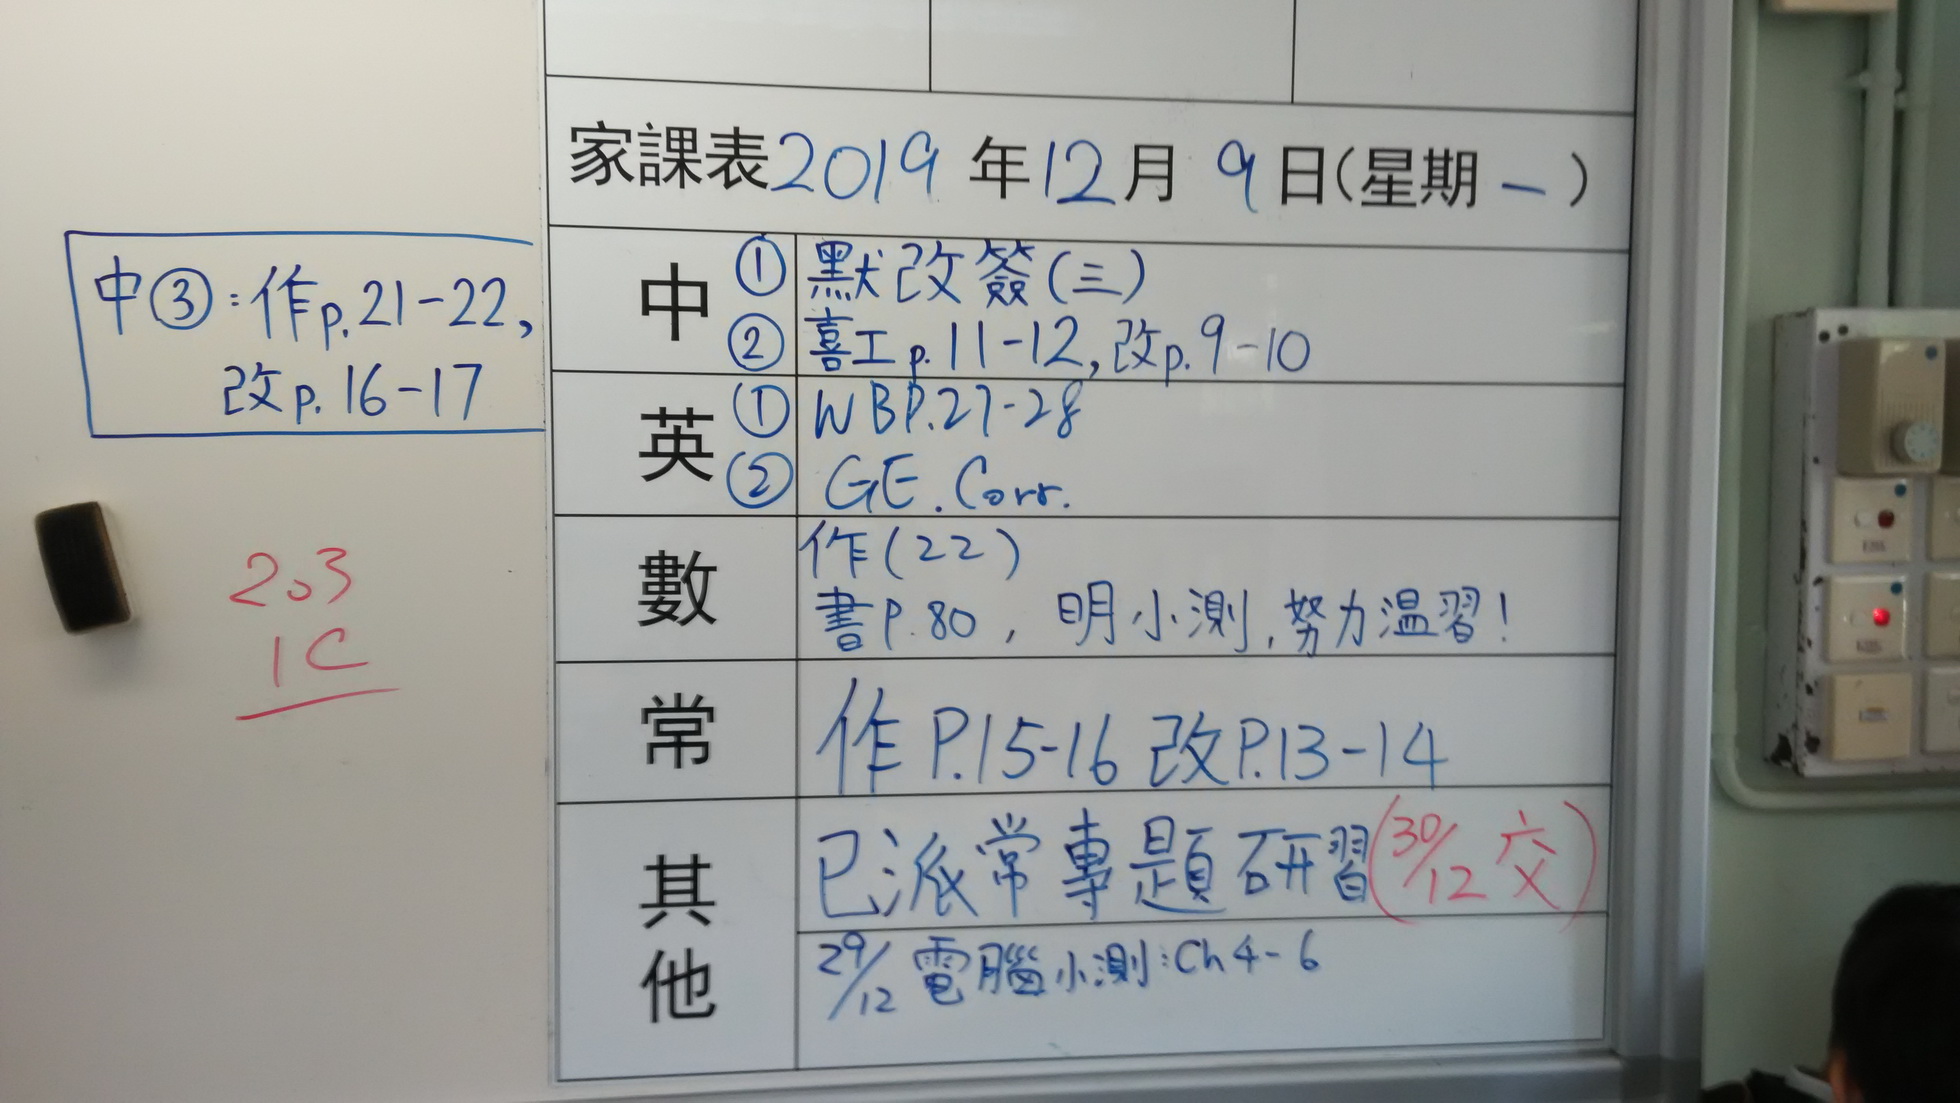 家課表2019年12月9日(星期一)
中③:作p.21-22,
改p.16-17
中①默改簽(三)
②喜工p.11-12,改p.9-10
英①WBP.27-28
②GE.Corr.
數 作(22)
書P.80,明小測,努力温習!
常 作P.15-16 改P.13-14
其他 已派常專題研習(30/12交)
29/12 電腦小測:Ch4-6
203
1C